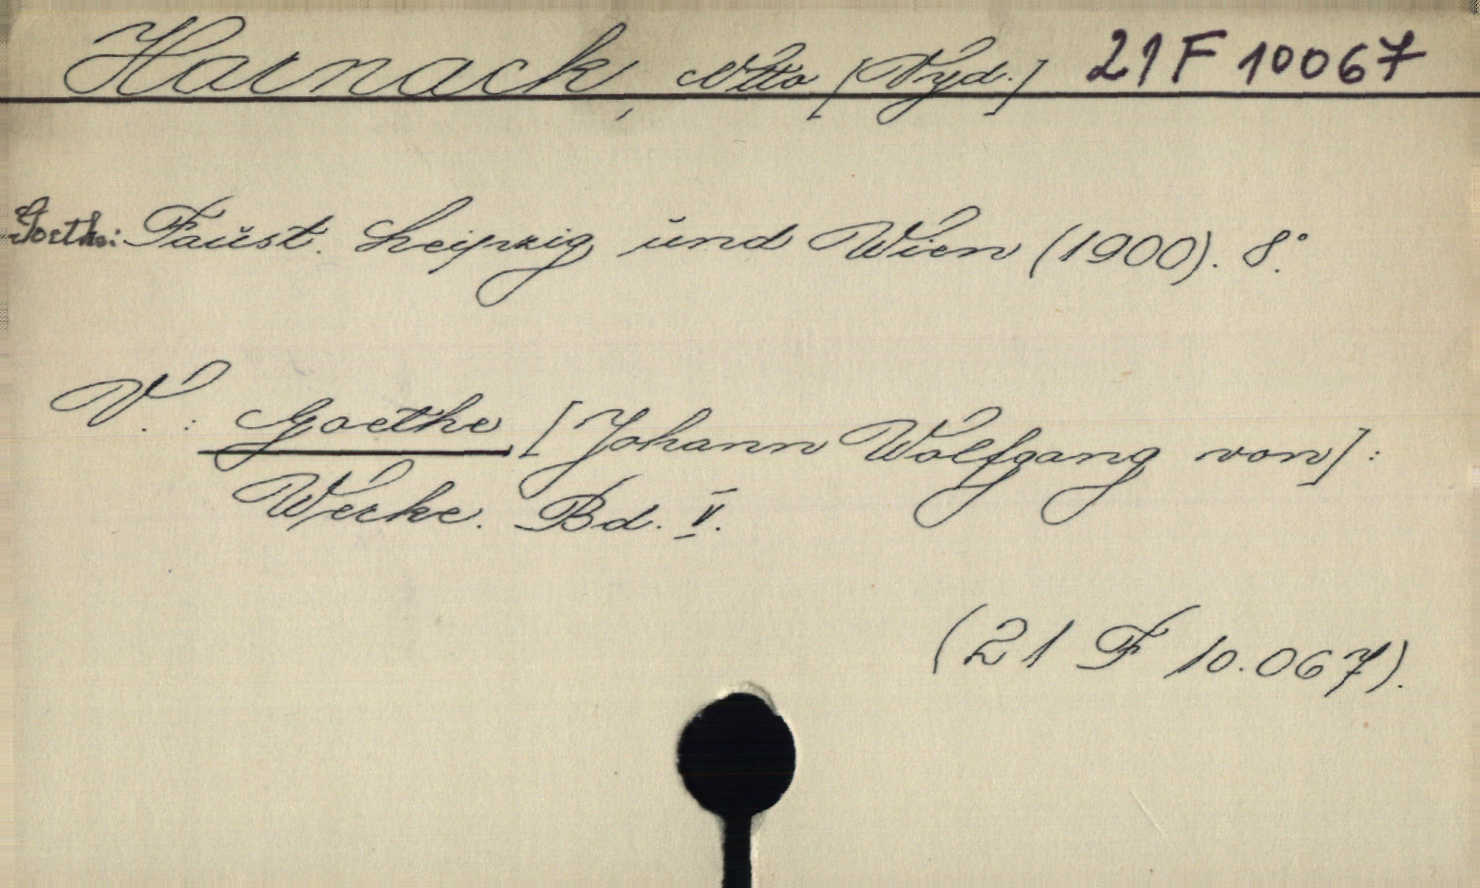 Harnack, Otto [Vyd.] 21 F 10067
Goethe: Faust. Leipzig und Wien (1900). 8°.
V.: Goethe, [Johann Wolfgang von]:
Werke. Bd. V.
(21 F 10.067).